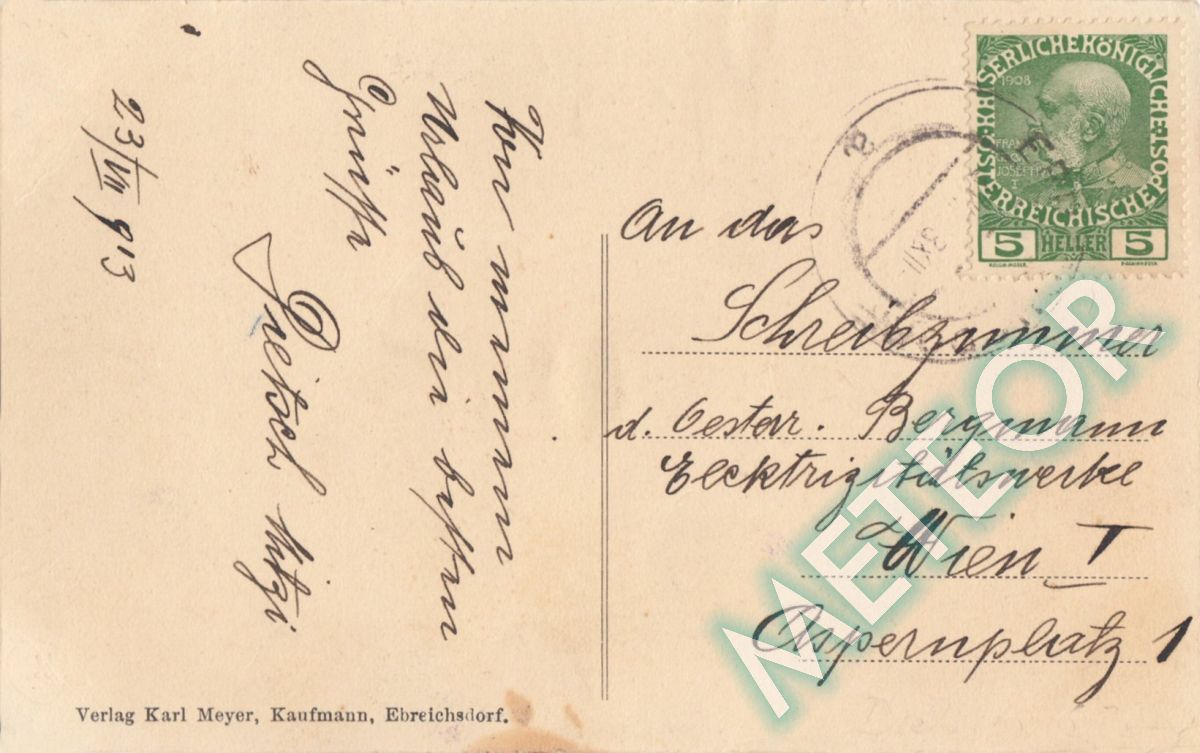 Von meinem
Urlaub die besten
Grüsse
Pietsch Mitzi
23/VII 913
Verlag Karl Meyer, Kaufmann, Ebreichsdorf.
KAISERLICHE KÖNIGLICHE
ÖSTERREICHISCHE POST
1908
FRANZ
JOSEPH
I
5 HELLER 5
An das
Schreibzimmer
d. Oestar. Bergmann
Eecktrizitätswerke
Wien I
Aspernplatz 1
METEOR